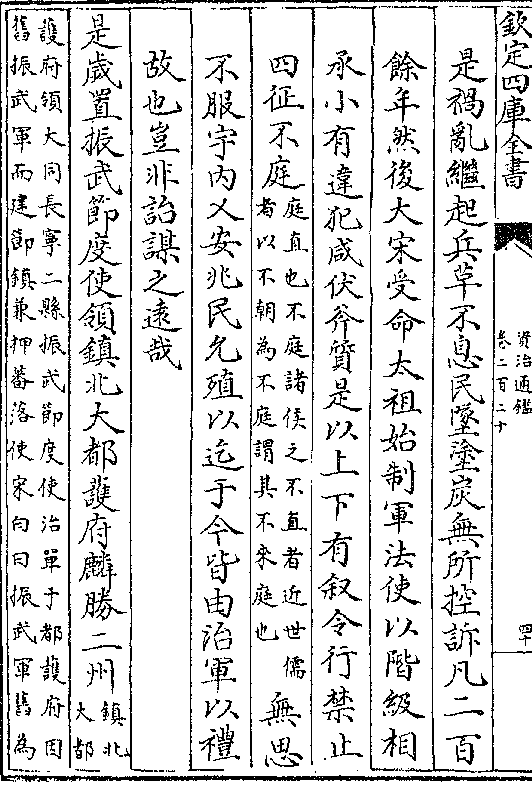 欽定四庫全書
資治通鑑
卷二百二十
四十
是禍亂繼起兵革不息民墜塗炭無所控訴凡二百
餘年然後大宋受命太祖始制軍法使以階級相
承小有違犯咸伏斧質是以上下有叙令行禁止
四征不庭庭直也不庭諸侯之不直者近世儒者以不朝為不庭謂其不來庭也無思
不服宇内乂安兆民允殖以迄于今皆由治軍以禮
故也豈非詒謀之遠哉
是歲置振武節度使領鎮北大都護府麟勝二州鎮北大都
護府領大同長寧二縣振武節度使治單于都護府因
舊振武軍而建節鎮兼押蕃落使宋白曰振武軍舊為